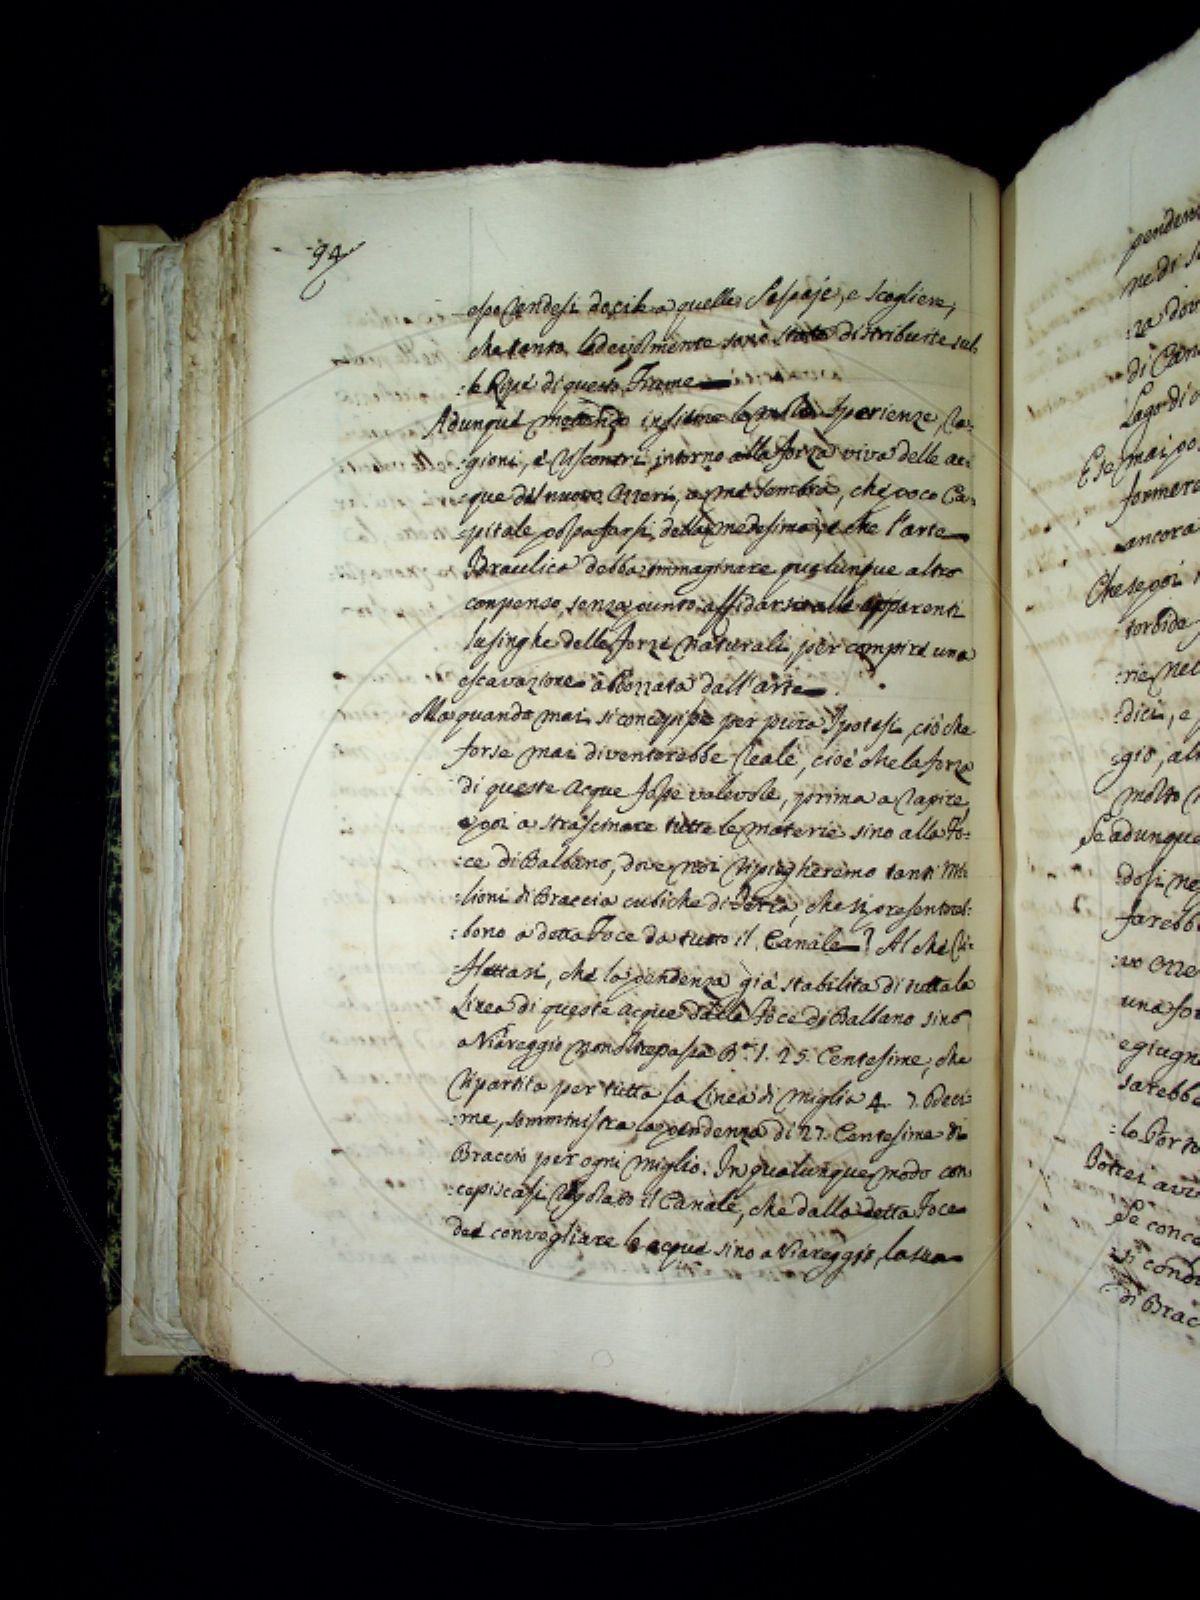 94
esso rendesi docile a quelle Sassaje, e Scogliere,
che tanto lodevolmente sono state distribuite sul:
:le Ripe di questo Fiume
Adunque mettendo insieme le molte Sperienze, Ra:
:gioni, e riscontri intorno alla forza viva delle ac:
:que del nuovo Ozzeri, a me sembra, che poco Ca:
:pitale possa farsi della medesima, e che l'arte
Idraulica debba immaginare qualunque altro
conpenso, senza punto affidarsi alle apparenti
lusinghe delle forze naturali, per compire una
escavazione abbozzata dall'arte.
Ma quando mai si concepisse per pura Ipotesi, ciò che
forse mai diventerebbe reale, cioè che la forza
di queste Acque fosse valevole, prima a rapire,
e poi a strascinare tutte le materie sino alla Fo:
:ce di Balbano, dove noi ripiegheremo tanti Mi:
:lioni di Braccia cubiche di Terra, che si presentereb:
:bono a detta Foce da tutto il Canale? Al che ri:
:flettasi, che la pendenza già stabilita di tutta la
Linea di queste acque dalla Foce di Balbano sino
a Viareggio non oltrepassa Bra. 1. 25. Centesime, che
ripartita per tutta la Linea di miglia 4. 7. Deci:
:me, somministra la pendenza di 27. Centesime di
Braccio per ogni miglio. In qualunque modo con:
:cepiscasi regolato il Canale, che dalla detta Foce
dee convogliare le acque sino a Viareggio, la sua
di Can
Lago di
E se mai po
formera
ancora
Che se poi
torbide
:rie nel
:dici, e
:gio, al
molto
Se adunque
:dosi ne
farebb
una for
e giugn
sarebb
:lo Por
Potrei av
Se conc
:si cond
di Brac